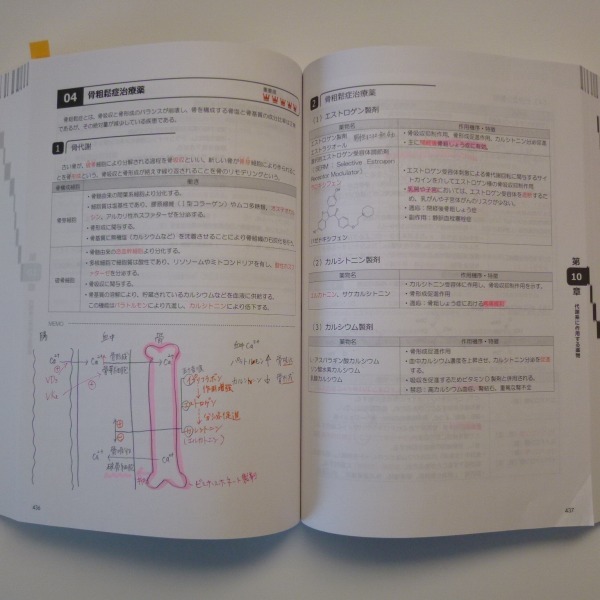 04 骨粗鬆症治療薬
骨粗鬆症とは、骨吸収と骨形成のバランスが崩壊し、骨を構成する骨塩と骨基質の
であるが、その絶対量が減少している疾患である。
1 骨代謝
古い骨が、破骨細胞により分解される過程を骨吸収といい、新しい骨が骨芽細胞により作られるこ
とを骨形成という。骨吸収と骨形成が絶えず繰り返されることを骨のリモデリングという。
働き
骨芽細胞
・骨髄由来の間葉系細胞より分化する。
・細胞質は塩基性であり、膠原線維(Ⅰ型コラーゲン)やムコ多糖類、オステオカル
シン、アルカリ性ホスファターゼを分泌する。
・骨形成に関与する。
・骨基質に無機質(カルシウムなど)を沈着させることにより骨組織の石灰化を行う
破骨細胞
・骨髄由来の造血幹細胞より分化する。
・多核細胞で細胞質は酸性であり、リソソームやミトコンドリアを有し、酸性ホスフ
ァターゼを分泌する。
・骨吸収に関与する。
・骨基質の溶解により、貯蔵されているカルシウムなどを血液に供給する。
この機能はパラトルモンにより亢進し、カルシトニンにより低下する。
MEMO
腸
血中
骨
Ca²⁺
骨芽細胞
Ca²⁺
エストロゲン
Ca²⁺
破骨細胞
Ca²⁺
ビスホスホネート製剤
406
2 骨粗鬆症治療薬
(1) エストロゲン製剤
薬物名 作用機序・特徴
エストラジオール
エストリオール
・骨吸収抑制作用、骨形成促進作用、カルシトニン分泌促進
・主に閉経後骨粗しょう症に有効。
(SERM：Selective Estrogen
Receptor Modulator)
ラロキシフェン
バゼドキシフェン
・エストロゲン受容体刺激による骨代謝回転に関与するサイ
トカインを介してエストロゲン様の骨吸収抑制作用
・乳房や子宮においては、エストロゲン受容体を遮断するた
め、乳がんや子宮体がんのリスクが少ない。
・適応：閉経後骨粗しょう症
・副作用：静脈血栓塞栓症
(2) カルシトニン製剤
薬物名 作用機序・特徴
エルカトニン、サケカルシトニン
・カルシトニン受容体に作用し、骨吸収抑制作用を示す。
・骨形成促進作用
・適応：骨粗しょう症における疼痛緩和
(3) カルシウム製剤
薬物名 作用機序・特徴
L-アスパラギン酸カルシウム
リン酸水素カルシウム
・骨形成促進作用
・血中カルシウム濃度を上昇させ、カルシトニン分泌を促進
する。
・吸収を促進するためビタミンD製剤と併用される。
・禁忌：高カルシウム血症、腎結石、重篤な腎不全
第
10
章
代謝系に作用する薬物
407